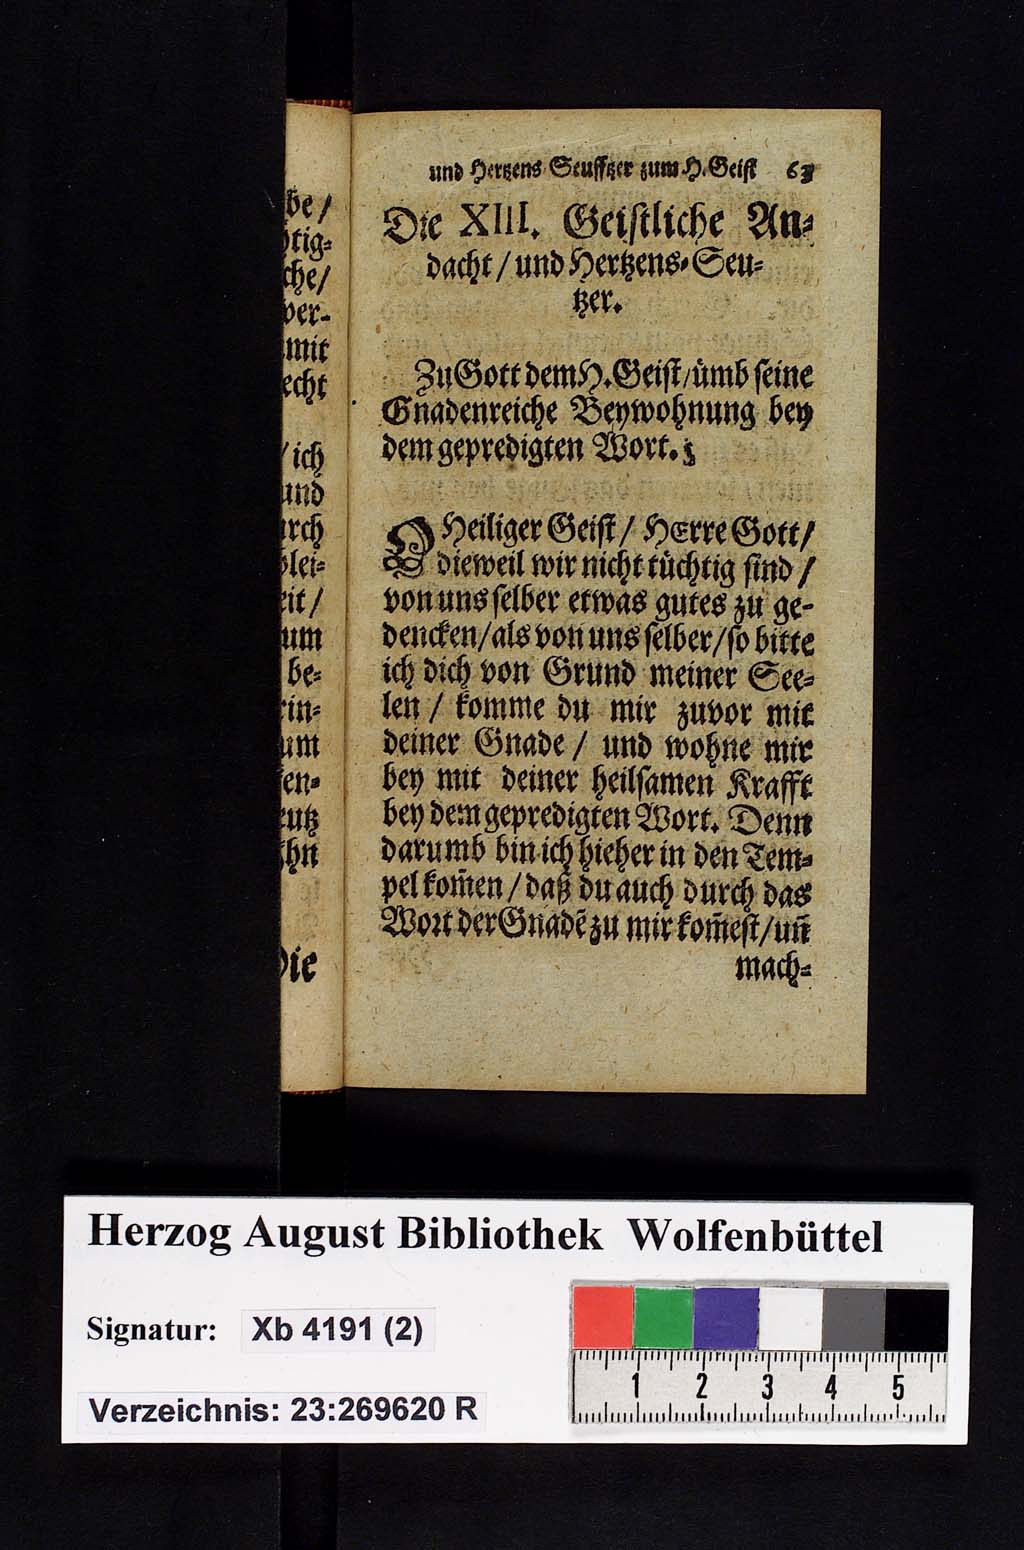 be/
htig-
che/
ver-
mit
echt
/ich
und
urch
blei-
eit/
um
be-
rin-
um
ken-
eutz
Die
und Hertzens-Seufftzer zum H. Geist 63
Die XIII. Geistliche An-
dacht / und Hertzens-Seu-
tzer.
Zu Gott dem H. Geist / ümb seine
Gnadenreiche Beywohnung bey
dem gepredigten Wort.
O Heiliger Geist / HErre Gott /
dieweil wir nicht tüchtig sind /
von uns selber etwas gutes zu ge-
dencken / als von uns selber / so bitte
ich dich von Grund meiner See-
len / komme du mir zuvor mit
deiner Gnade / und wohne mir
bey mit deiner heilsamen Krafft
bey dem gepredigten Wort. Denn
darumb bin ich hieher in den Tem-
pel kom̃en / daß du auch durch das
Wort der Gnadẽ zu mir kom̃est / uñ
mach-
Herzog August Bibliothek Wolfenbüttel
Signatur: Xb 4191 (2)
Verzeichnis: 23:269620 R
1 2 3 4 5